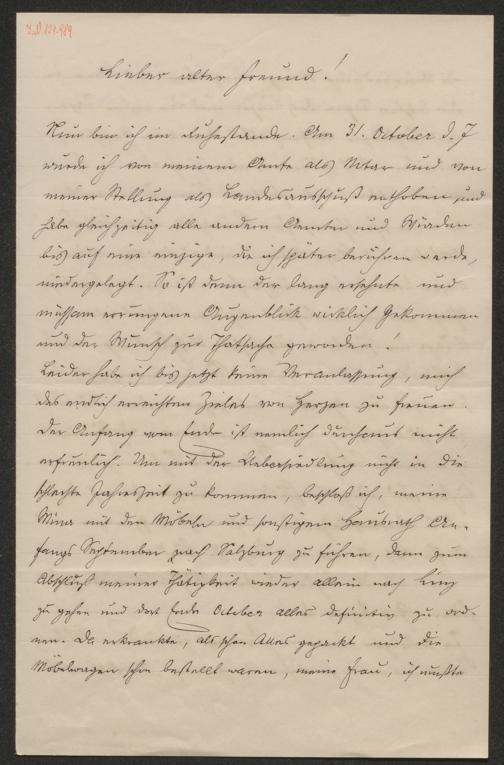 I.N.121.989
Lieber alter Freund!
Nun bin ich im Ruhestande. Am 31. October d. J
wurde ich von meinem Amte als Notar und von
meiner Stellung als Landesausschuß enthoben und
habe gleichzeitig alle andern Aemter und Würden
bis auf eine einzige, die ich später berühren werde,
niedergelegt. So ist denn der lang ersehnte und
mühsam errungene Augenblick wirklich gekommen
und der Wunsch zur Thatsache geworden!
Leider habe ich bis jetzt keine Veranlassung, mich
des endlich erreichten Zieles von Herzen zu freuen.
Der Anfang vom Ende ist nemlich durchaus nicht
erfreulich. Um mit der Uebersiedlung nicht in die
schlechte Jahreszeit zu kommen, beschloß ich, meine
Mina mit den Möbeln und sonstigem Hausrath An-
fangs September nach Salzburg zu führen, dann zum
Abschluß meiner Thätigkeit wieder allein nach Linz
zu gehen und dort Ende October alles definitiv zu ord-
nen. Da erkrankte, als schon Alles gepackt und die
Möbelwagen schon bestellt waren, meine Frau, ich mußte